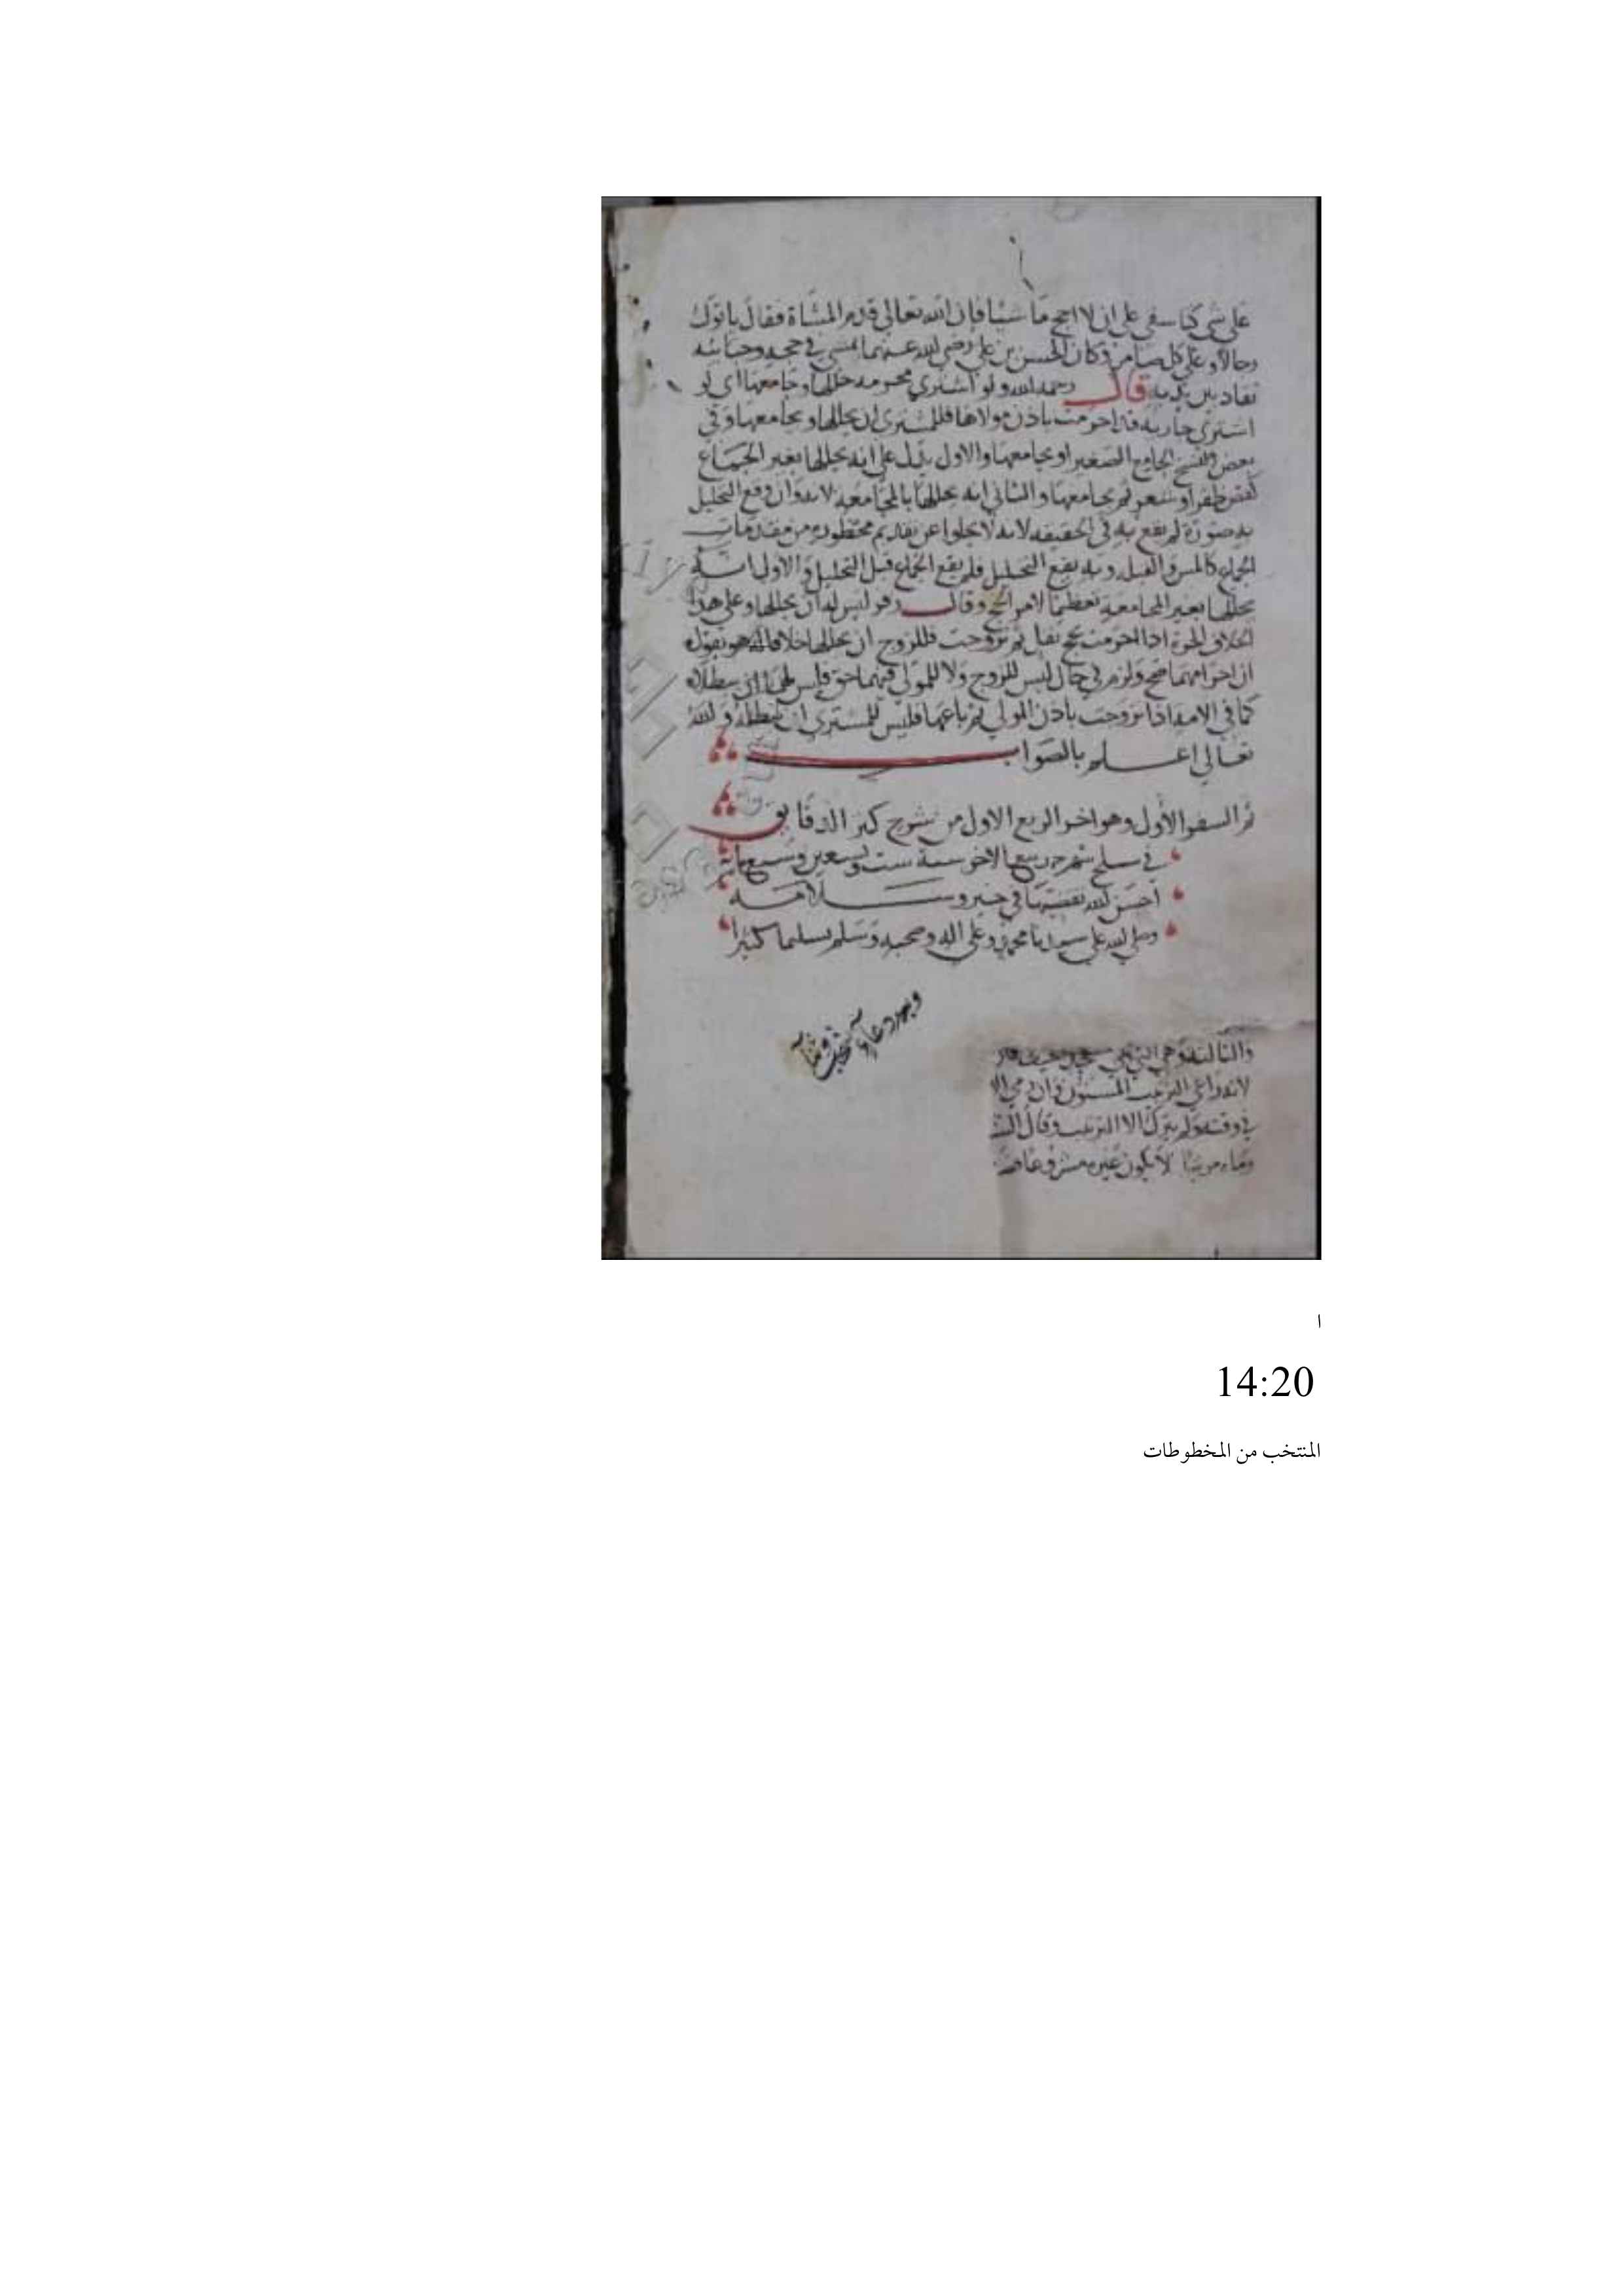 على شي كتاسفي على ان لا احج ماشيا فان الله تعالى قدم المشاة فقال ياتوك
رجالا وعلى كل ضامر وكان الحسن بن علي رضي الله عنهما يمشي في حجه وجنائبه
تقاد بين يديه قال رحمه الله ولو اشتري محرمة حللها وجامعها اي لو
اشتري جارية قد احرمت باذن مولاها فللمشتري ان يحللها ويجامعها وفي
بعض نسخ الجامع الصغير او يجامعها والاول يدل على انه يحللها بغير الجماع
كقص ظفر او شعر ثم يجامعها والثاني انه يحللها بالمجامعة لانه وان وقع التحليل
به صورة لم يقع به في الحقيقة لانه لا يخلوا عن تقديم محظورة من مقدمات
الجماع كالمس والقبلة وبه يقع التحليل فلم يقع الجماع قبل التحليل والاول انه
يحللها بغير المجامعة تعظيما لامر الحج وقال زفر ليس له ان يحللها وعلى هذا
الخلاف الحرة اذا احرمت بحج نفل ثم تزوجت فللزوج ان يحللها خلافا له هو يقول
ان احرامهما صح ولزم في حال ليس للزوج ولا للمولى فيهما حق فليس لهما ان يبطلاه
كما في الامة اذا تزوجت باذن المولى ثم باعها فليس للمشتري ان يبطله والله
تعالى اعلم بالصواب
تم السفر الاول وهو اخر الربع الاول من شرح كنز الدقايق
في سلخ شهر ربيع الاخر سنة ست وتسعين وسبعماية
احسن الله تقضيها في خير وسلامة
وصلى الله على سيدنا محمد وعلى اله وصحبه وسلم تسليما كثيرا
والثالثة وهي التي تلي مسجد الخيف
لانه راعى الترتيب المسنون وان رمى الا
في وقته ولم يترك الا الترتيب وقال الش
لا يكون غيره مشروعا
ا
14:20
المنتخب من المخطوطات